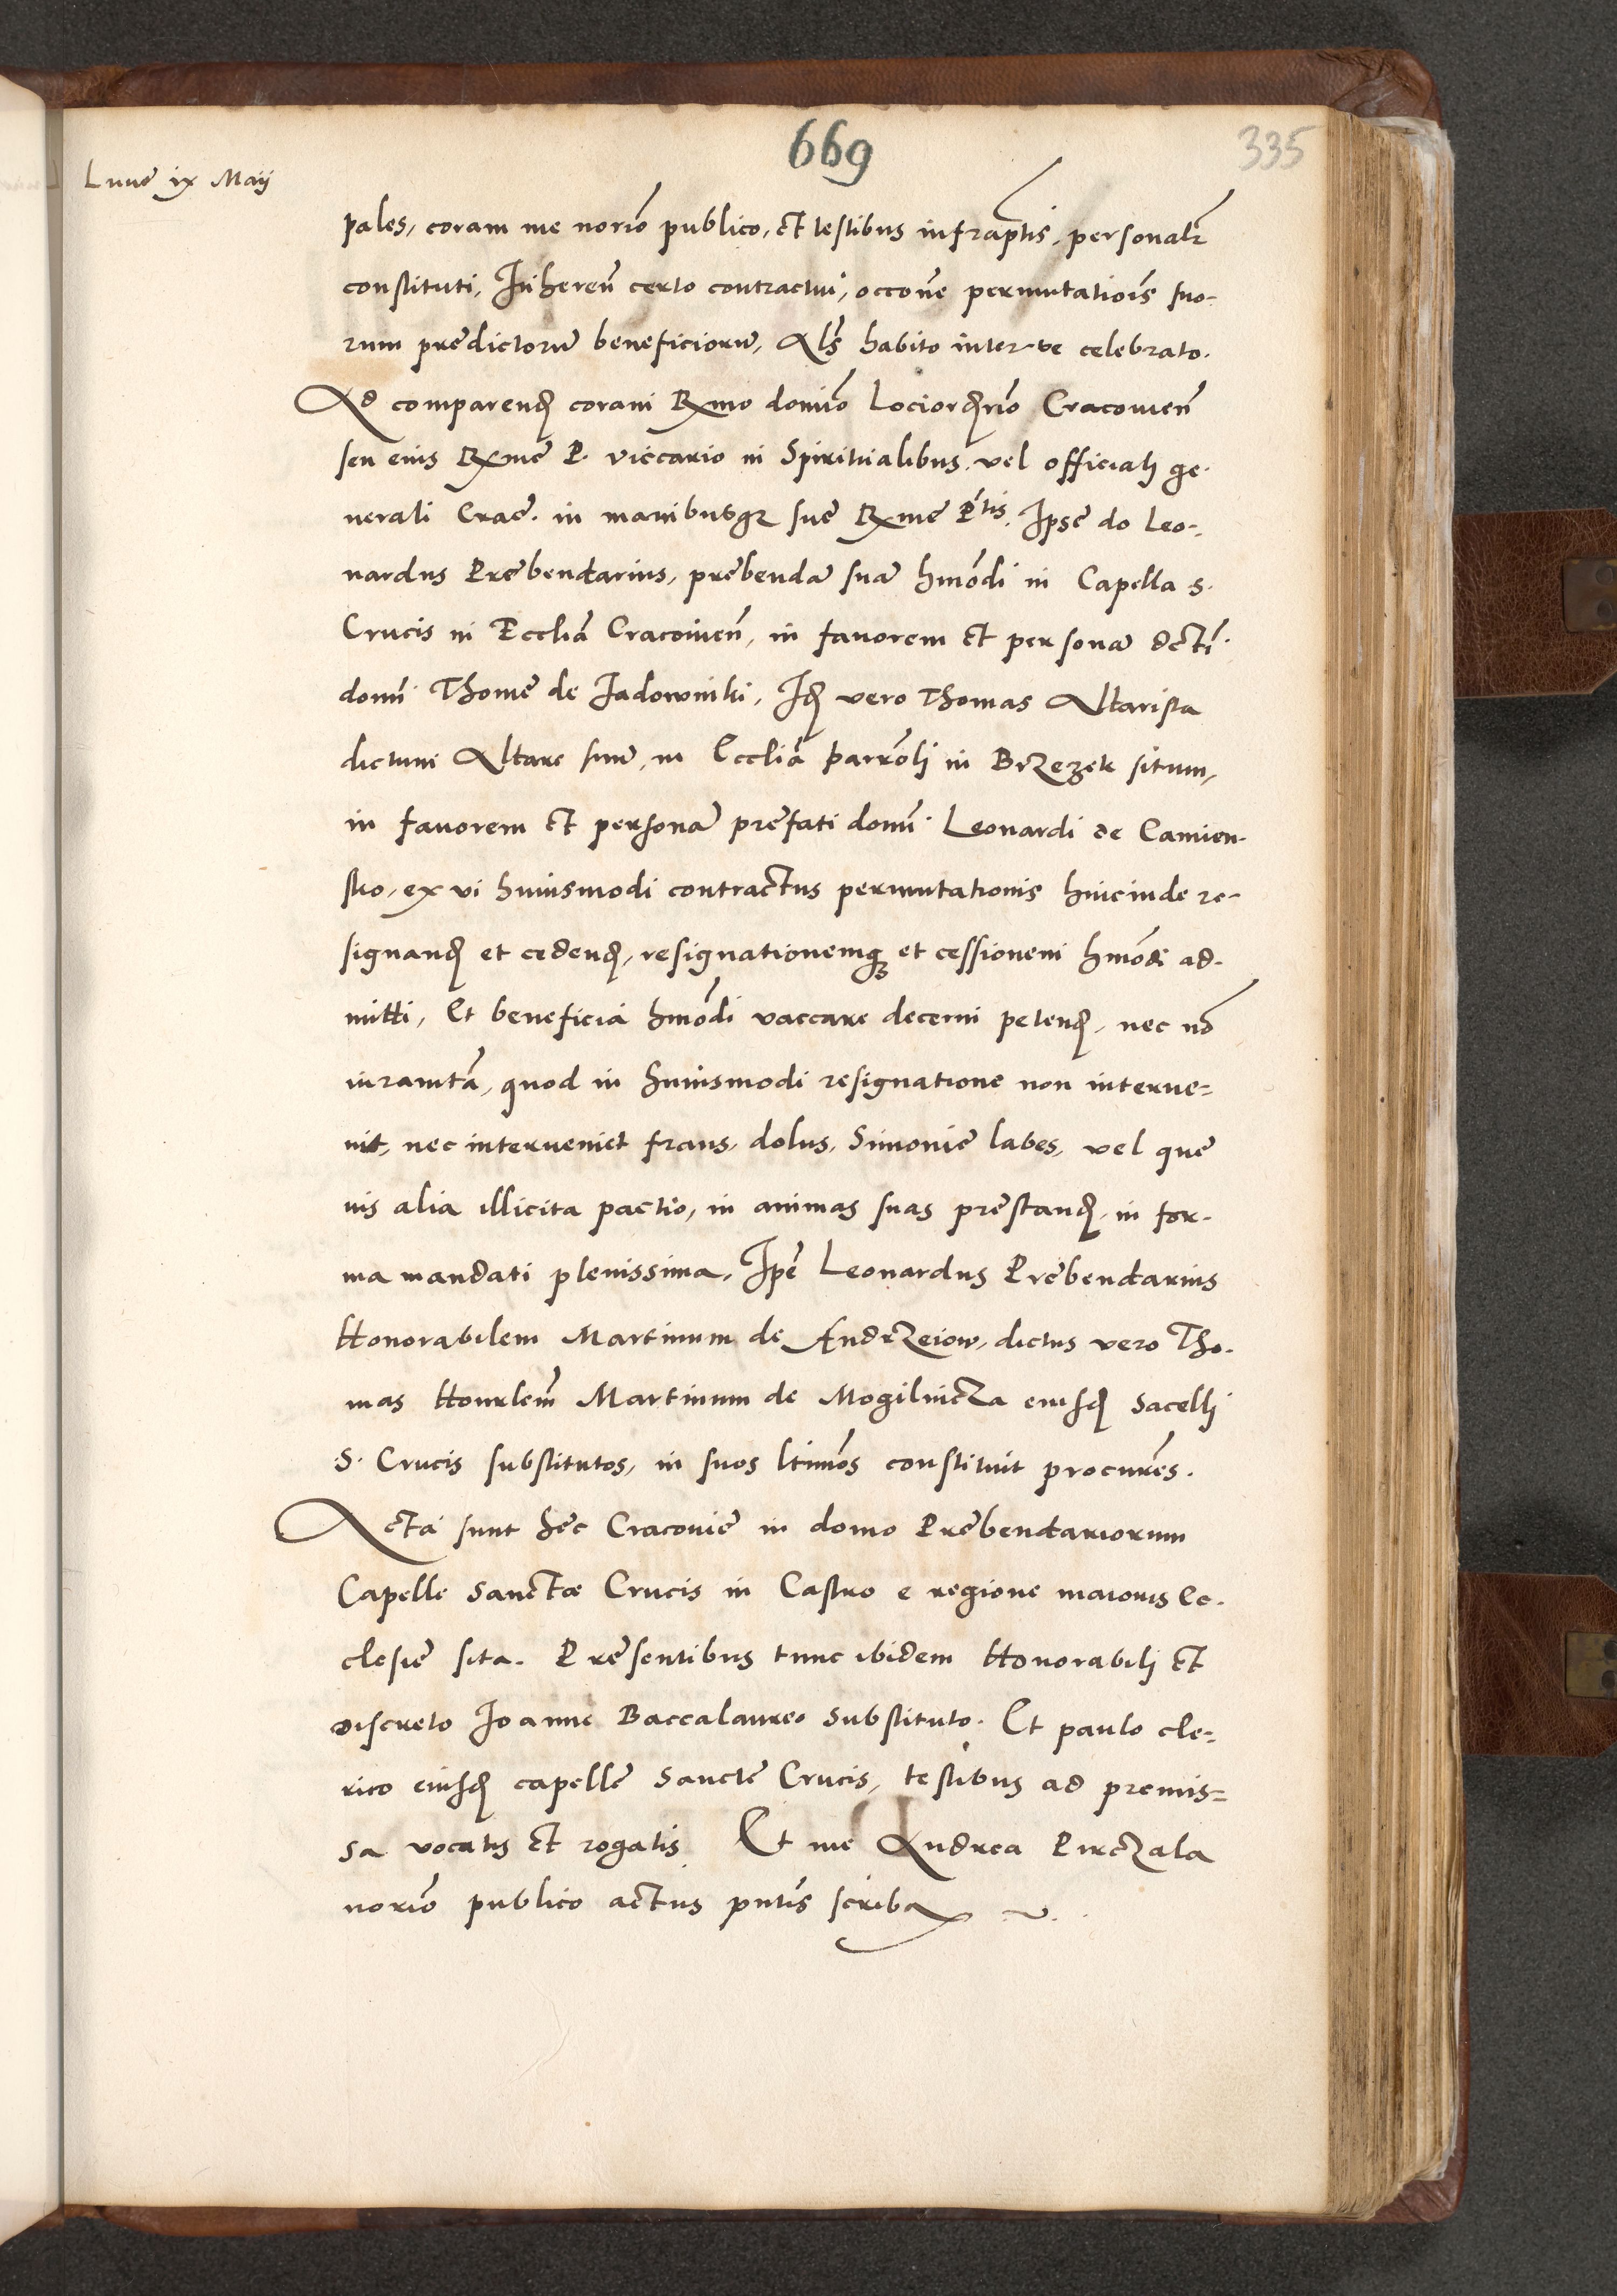 669
335
Lune ix Maij
pales, coram me norio publico, et testibus infraptis, personalr
constituti, Inheren certo contractui, occone permutatiois suo-
rum predictoru beneficioru, Als habito inter se celebrato.
Ad comparend coram Rxmo domio Lociordrio Cracouien
seu eius Rxme P. viccario in Spiritualibus, vel officiali ge-
nerali Crac. in manibusq sue Rxme Ptis. Ipse do Leo-
nardus Prebendarius, prebenda sua hmodi in Capella S.
Crucis in Ecclia Cracouien, in fauorem et persona dcti
domi Thome de Jadowniki, Id vero Thomas Altarista
dictum Altare suu, in Ecclia parrohli in Brzezek situm,
in fauorem et persona prefati domi Leonardi de Camien-
sko, ex vi huiusmodi contractus permutationis hincinde re-
signand et cedend, resignationemq et cessionem hmodi ad-
mitti, Et beneficia hmodi vaccare decerni petend, nec no
iuramta, quod in huiusmodi resignatione non interue-
nit, nec interueniet fraus, dolus, Simonie labes, vel que
uis alia illicita pactio, in animas suas prestand, in for-
ma mandati plenissima, Ipe Leonardus Prebendarius
Honorabilem Martinum de Andrzeiow, dictus vero Tho-
mas Honrlem Martinum de Mogilnicza eiusd Sacelli
S. Crucis substitutos, in suos ltimos constituit procures.
Acta sunt hec Cracouie in domo Prebendariorum
Capelle Sanctæ Crucis in Castro e regione maioris Ec-
clesie sita. Presentibus tunc ibidem Honorabili et
discreto Joanne Baccalaureo Substituto. Et paulo cle-
rico eiusd capelle Sancte Crucis, testibus ad premis=
sa vocatis et rogatis Et me Andrea Pirczala
norio publico actus pntis scriba